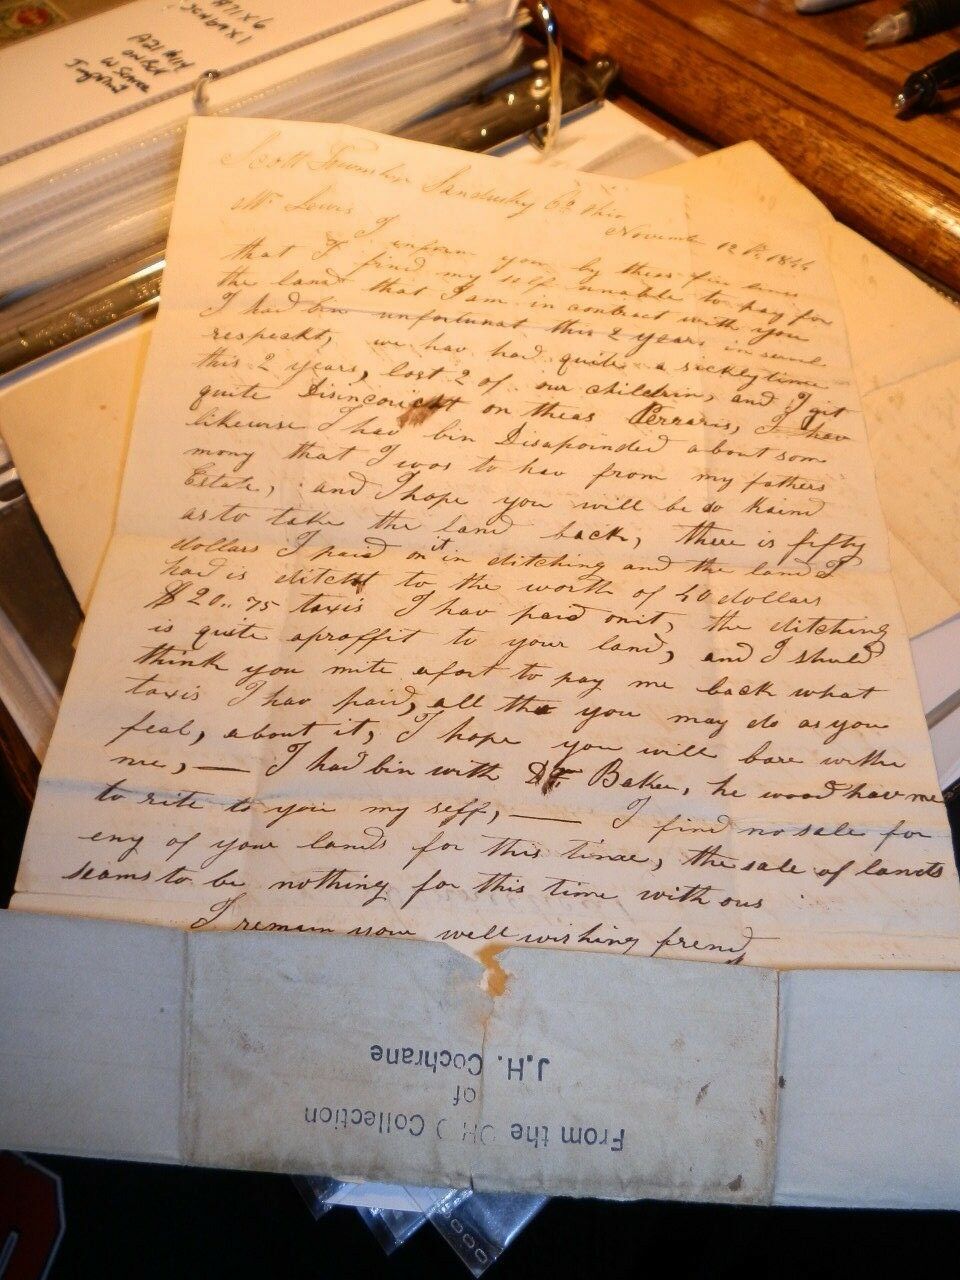 A21 #14
on Bck
w Scarce
Imprint
Scott Township Sandusky Co. Ohio
November 12th, 1844
Mr Lewis
I inform you by theas fiew lines
that I find my self unable to pay for
the land that I am in contract with you
I had bin unfortunat this 2 years in sevral
respeckt, we hav had quite a sickly time
this 2 years, lost 2 of our childrin, and I git
quite Disincouricht on theas Perraris, I hav
likewise I hav bin Disapoinded about som
mony that I was to hav from my fathers
Estate, and I hope you will be so kaind
as to take the land back, there is fifty
dollars I paid on it in ditching and the land I
had is ditcht to the worth of 40 dollars
$20..75 taxis I hav paid onit, the ditching
is quite aproffit to your land, and I shuld
think you mite afort to pay me back what
taxis I hav paid, all tho you may do as you
feal, about it, I hope you will bare withe
me, — I had bin with Dr. Baker, he wood hav me
to rite to you my self, — I find no sale for
eny of your lands for this time, the sale of lands
seams to be nothing for this time with ous
I remain your well wishing frend
From the OHIO Collection
of
J.H. Cochrane